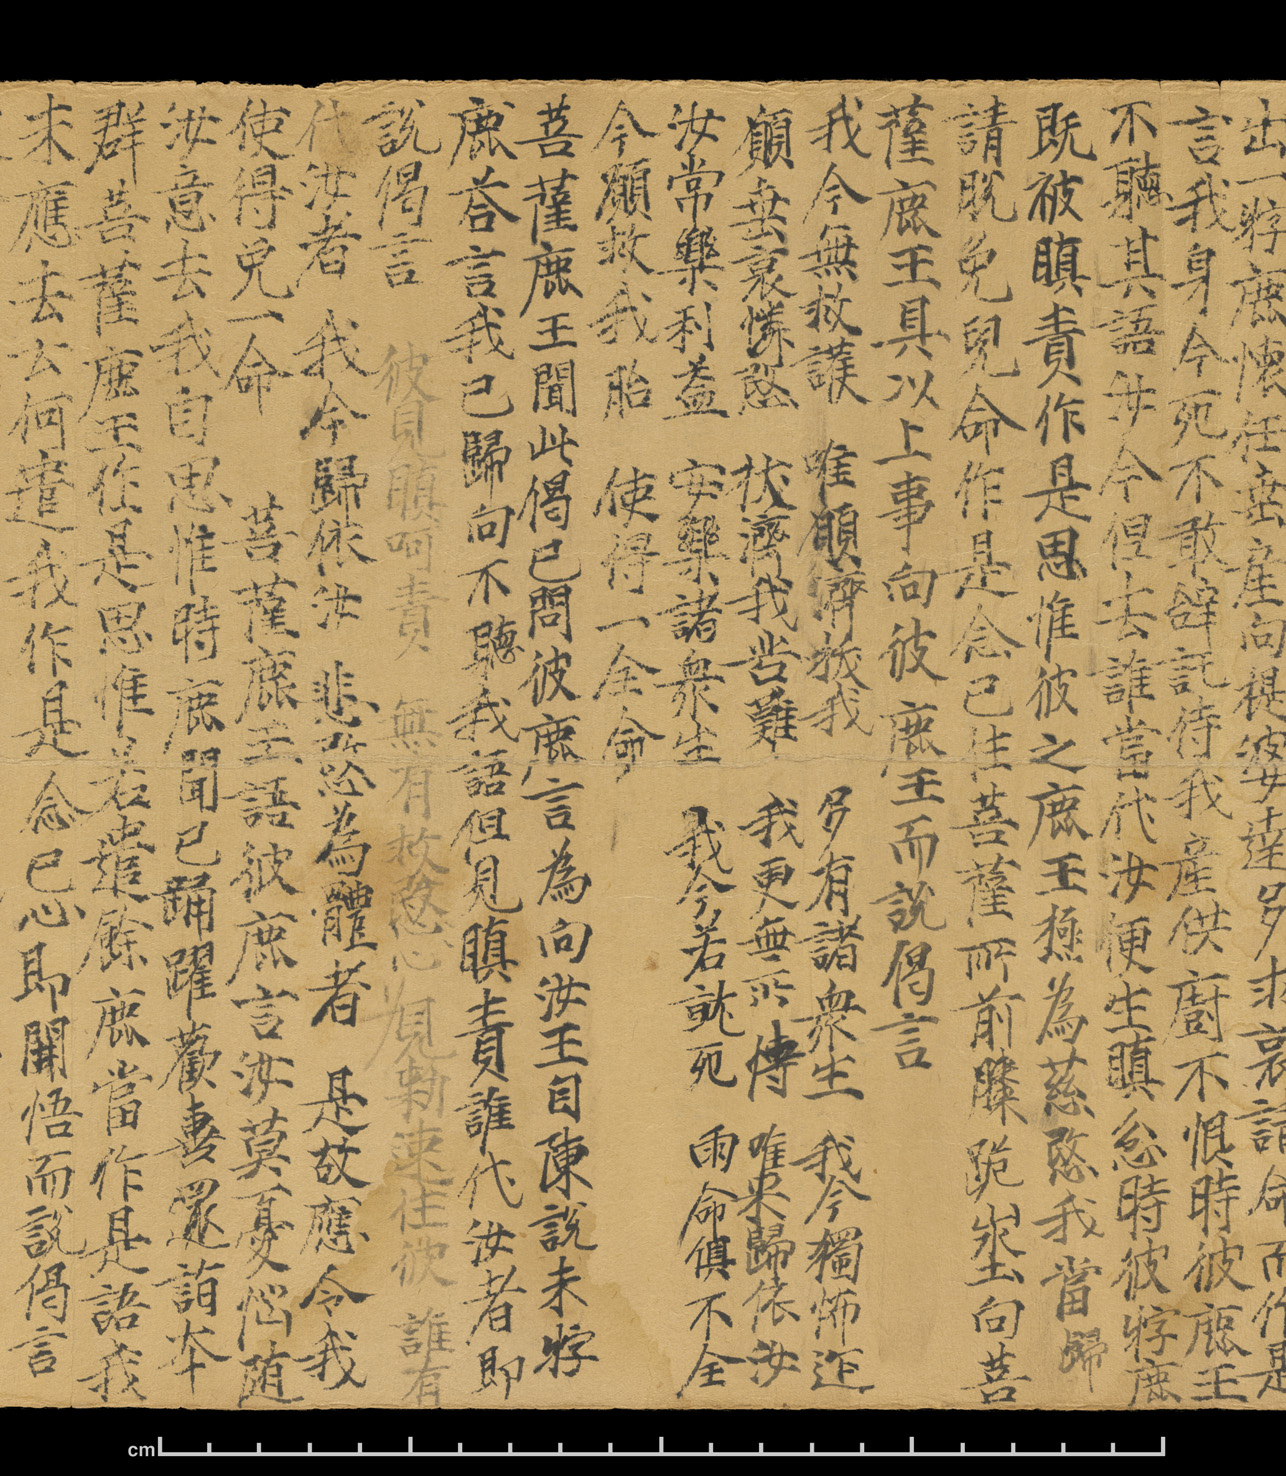 出一牸鹿懷任垂產向提婆達多求哀請命而作是
言我身今死不敢辝託待我產供廚不恨時彼鹿王
不聽其語汝今但去誰當代汝便生瞋忿時彼牸鹿
既被瞋責作是思惟彼之鹿王極為慈愍我當歸
請脫免兒命作是念已往菩薩所前膝跪埊向菩
薩鹿王具以上事向彼鹿王而說偈言
我今無救護 唯願濟拔我 多有諸衆生 我今獨怖迮
願垂哀憐愍 扷濟我苦難 我更無所恃 唯来歸依汝
汝常樂利益 安樂諸衆生 我今若就死 兩命俱不全
今願救我胎 使得一全命
菩薩鹿王聞此偈已問彼鹿言為向汝王自陳說未牸
鹿荅言我已歸向不聽我語但見瞋責誰代汝者即
說偈言 彼見瞋呵責 無有救愍心 見勑速往彼 誰有
代汝者 我今歸依汝 悲愍為體者 是故應令我
使得免一命 菩薩鹿王語彼鹿言汝莫憂惱随
汝意去我自思惟時鹿聞已踊躍歡喜還詣本
群菩薩鹿王作是思惟若遣餘鹿當作是語我
未應去云何遣我作是念已心即開悟而說偈言